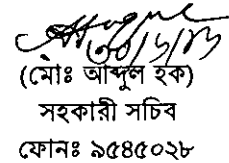 (মোঃ আব্দুল হক)
সহকারী সচিব
ফোনঃ ৯৫৪৫০২৮